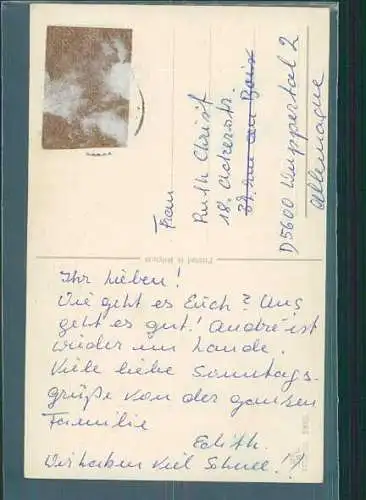 Frau
Ruth Christ
18. Ackerstr.
D5600 Wuppertal 2
Allemagne
Printed in Belgium
Ihr Lieben!
Wie geht es Euch? Uns
geht es gut! André ist
wieder im Lande.
Viele liebe Sonntags-
grüße von der ganzen
Familie
Edith.
Wir haben viel Schnee!